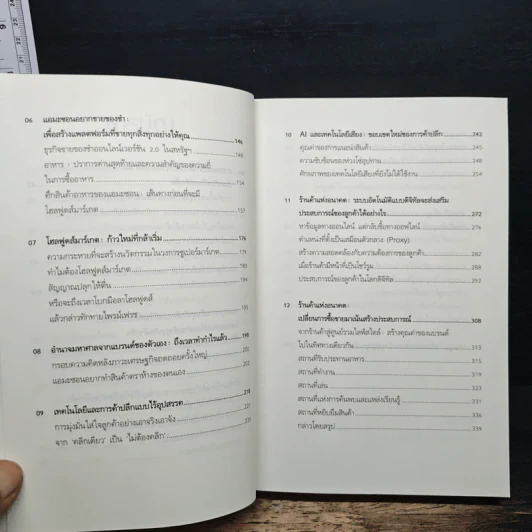 06 แอมะซอนอยากขายของชำ :
เพื่อสร้างแพลตฟอร์มที่ขายทุกสิ่งทุกอย่างให้คุณ 146
ธุรกิจขายของชำออนไลน์เวอร์ชัน 2.0 ในสหรัฐฯ 148
อาหาร : ปราการด่านสุดท้ายและความสำคัญของความถี่
ในการซื้ออาหาร 154
ศึกสินค้าอาหารของแอมะซอน : เส้นทางก่อนที่จะมี
โฮลฟู้ดส์มาร์เกต 157
07 โฮลฟู้ดส์มาร์เกต : ก้าวใหม่ที่กล้าเริ่ม 176
ความกระหายที่จะสร้างนวัตกรรมในวงการซูเปอร์มาร์เกต 179
ทำไมต้องโฮลฟู้ดส์มาร์เกต 181
สัญญาณปลุกให้ตื่น
หรือจะถึงเวลาโบกมือลาโฮลฟู้ดส์
แล้วกล่าวทักทายไพรม์เฟรช
08 อำนาจมหาศาลจากแบรนด์ของตัวเอง : ถึงเวลาทำกำไรแล้ว 198
กรอบความคิดหลังภาวะเศรษฐกิจถดถอยครั้งใหญ่ 200
แอมะซอนอยากทำสินค้าตราห้างของตนเอง 202
09 เทคโนโลยีและการค้าปลีกแบบไร้อุปสรรค 218
การมุ่งมั่นใส่ใจลูกค้าอย่างเอาจริงเอาจัง 221
จาก 'คลิกเดียว' เป็น 'ไม่ต้องคลิก'
10 AI และเทคโนโลยีเสียง : ขอบเขตใหม่ของการค้าปลีก 243
คุณค่าของการแนะนำสินค้า 245
ความซับซ้อนของห่วงโซ่อุปทาน 248
ศักยภาพของเทคโนโลยีเสียงที่ยังไม่ได้ใช้งาน 254
11 ร้านค้าแห่งอนาคต : ระบบอัตโนมัติแบบดิจิทัลจะส่งเสริม
ประสบการณ์ของลูกค้าได้อย่างไร 272
หาข้อมูลทางออนไลน์ แต่กลับซื้อทางออฟไลน์ 276
ตำแหน่งที่ตั้งเป็นเสมือนตัวกลาง (Proxy)
สร้างความสอดคล้องกับความต้องการของลูกค้า 282
เมื่อร้านค้ามีหน้าที่เป็นโชว์รูม 288
ประสบการณ์ของลูกค้าในโลกดิจิทัล 292
12 ร้านค้าแห่งอนาคต :
เปลี่ยนการซื้อขายมาเน้นสร้างประสบการณ์ 308
จากร้านค้าสู่ศูนย์รวมไลฟ์สไตล์ : สร้างคุณค่าของแบรนด์
ไปในทิศทางเดียวกัน 313
สถานที่รับประทานอาหาร 315
สถานที่ทำงาน 319
สถานที่เล่น 323
สถานที่แห่งการค้นพบและแหล่งเรียนรู้ 331
สถานที่หยิบยืมสินค้า 336
กล่าวโดยสรุป 339